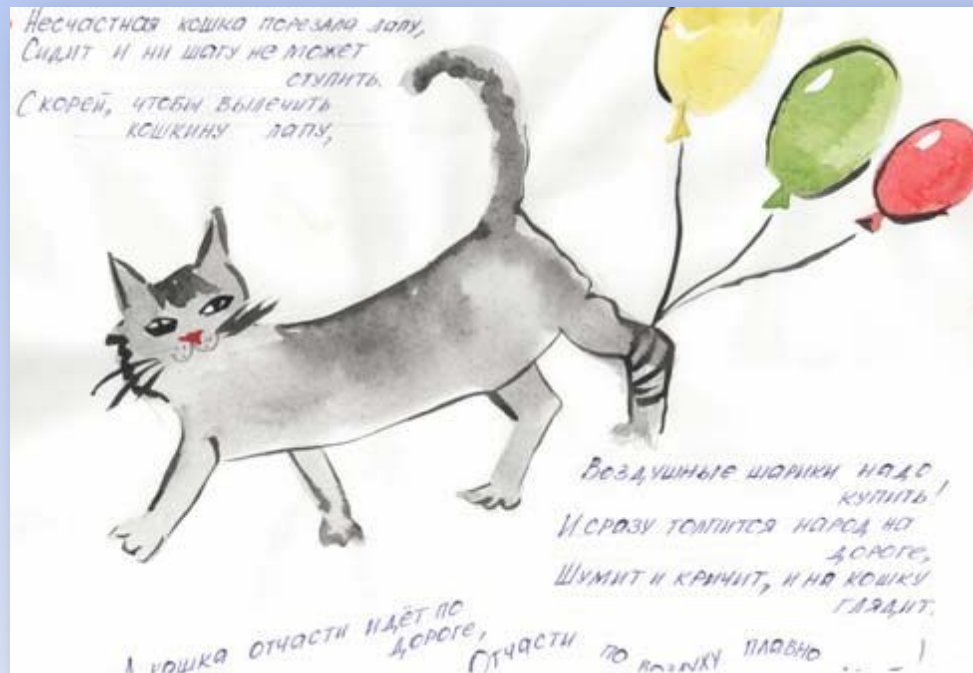 Несчастная кошка порезала лапу,
Сидит и ни шагу не может
ступить.
Скорей, чтобы вылечить
кошкину лапу,
Воздушные шарики надо
купить!
И сразу толпится народ на
дороге,
Шумит и кричит, и на кошку
глядит.
А кошка отчасти идёт по
дороге,
Отчасти по воздуху плавно